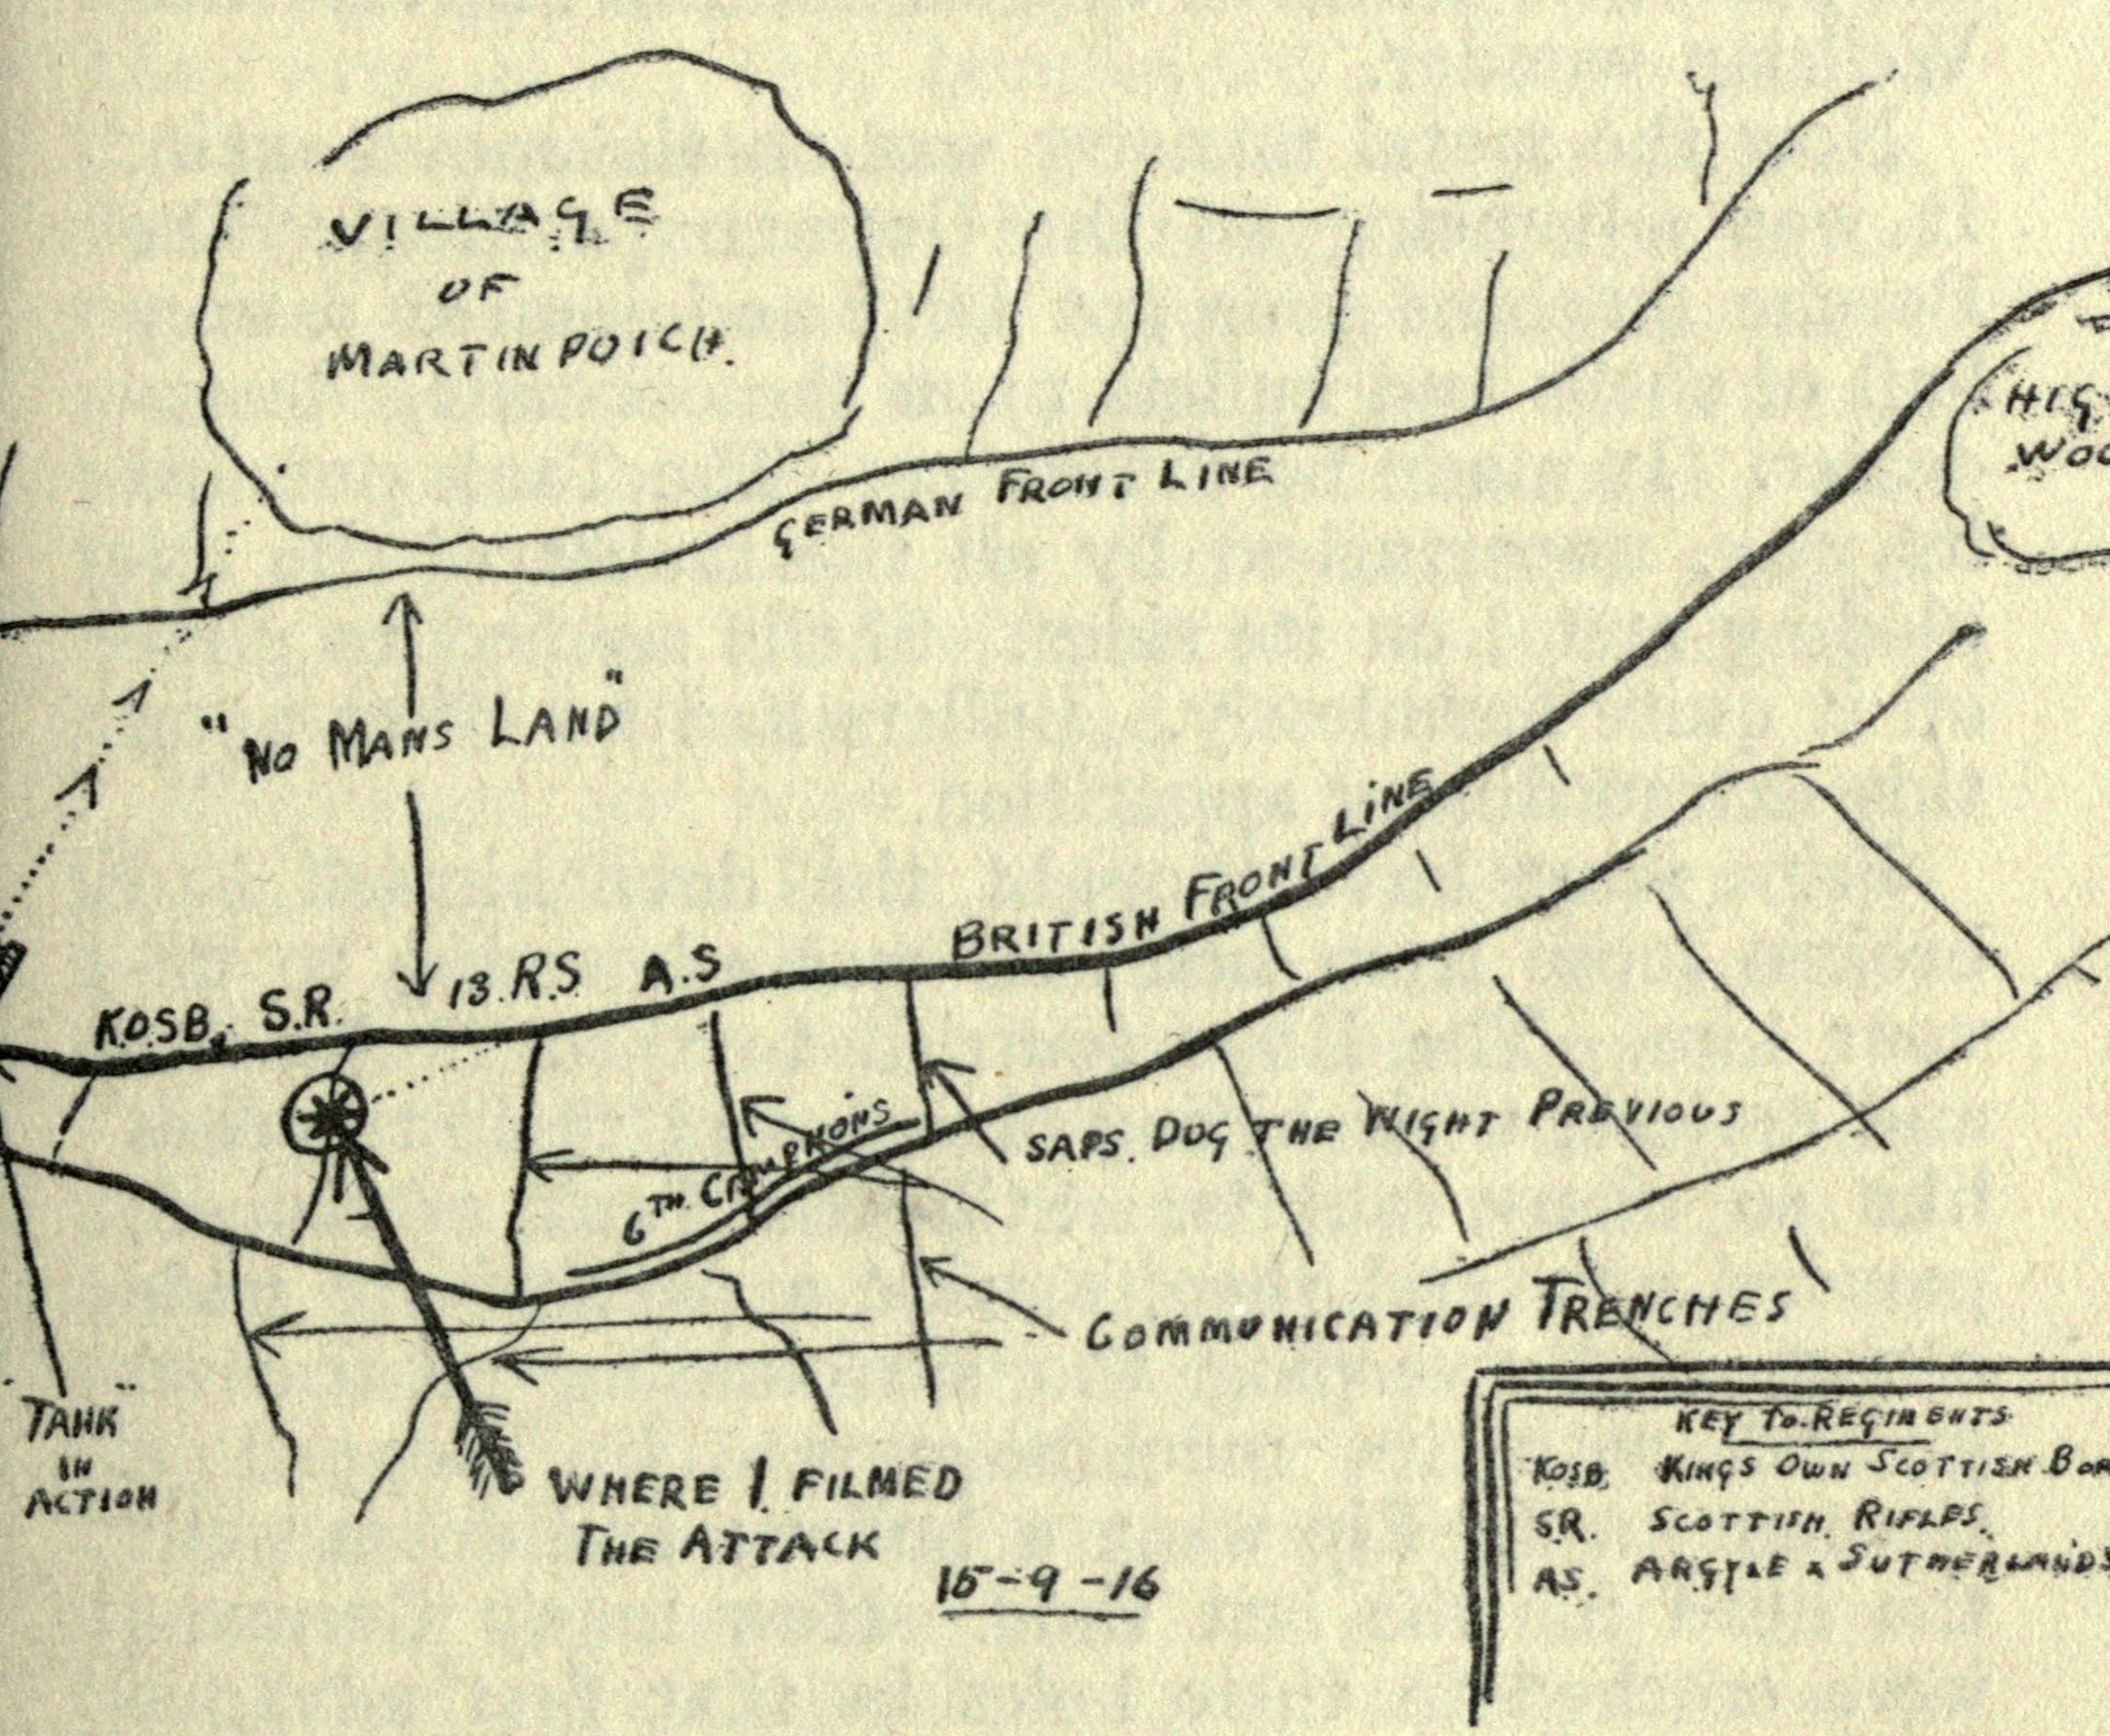 VILLAGE
OF
MARTINPOICH.
HIG
WOO
GERMAN FRONT LINE
"NO MANS LAND"
BRITISH FRONT LINE
KOSB. S.R. 13.R.S A.S
6TH CAMPRONS
SAPS. DUG THE NIGHT PREVIOUS
COMMUNICATION TRENCHES
"TANK"
IN
ACTION
WHERE I FILMED
THE ATTACK
15-9-16
KEY TO REGIMENTS
KOSB. KINGS OWN SCOTTISH BOR
S.R. SCOTTISH RIFLES.
AS. ARGYLE & SUTHERLANDS